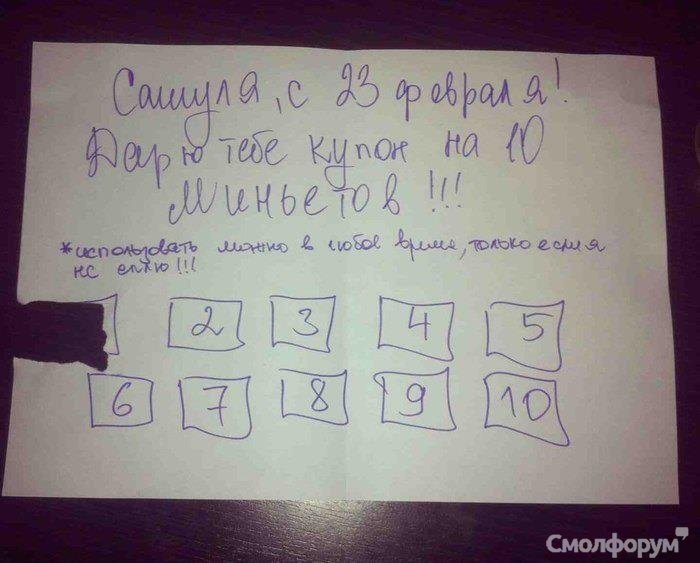 Сашуля, с 23 февраля!
Дарю тебе купон на 10
миньетов!!!
*использовать можно в любое время, только если я
не сплю!!!
2 3 4 5
6 7 8 9 10
Смолфорум